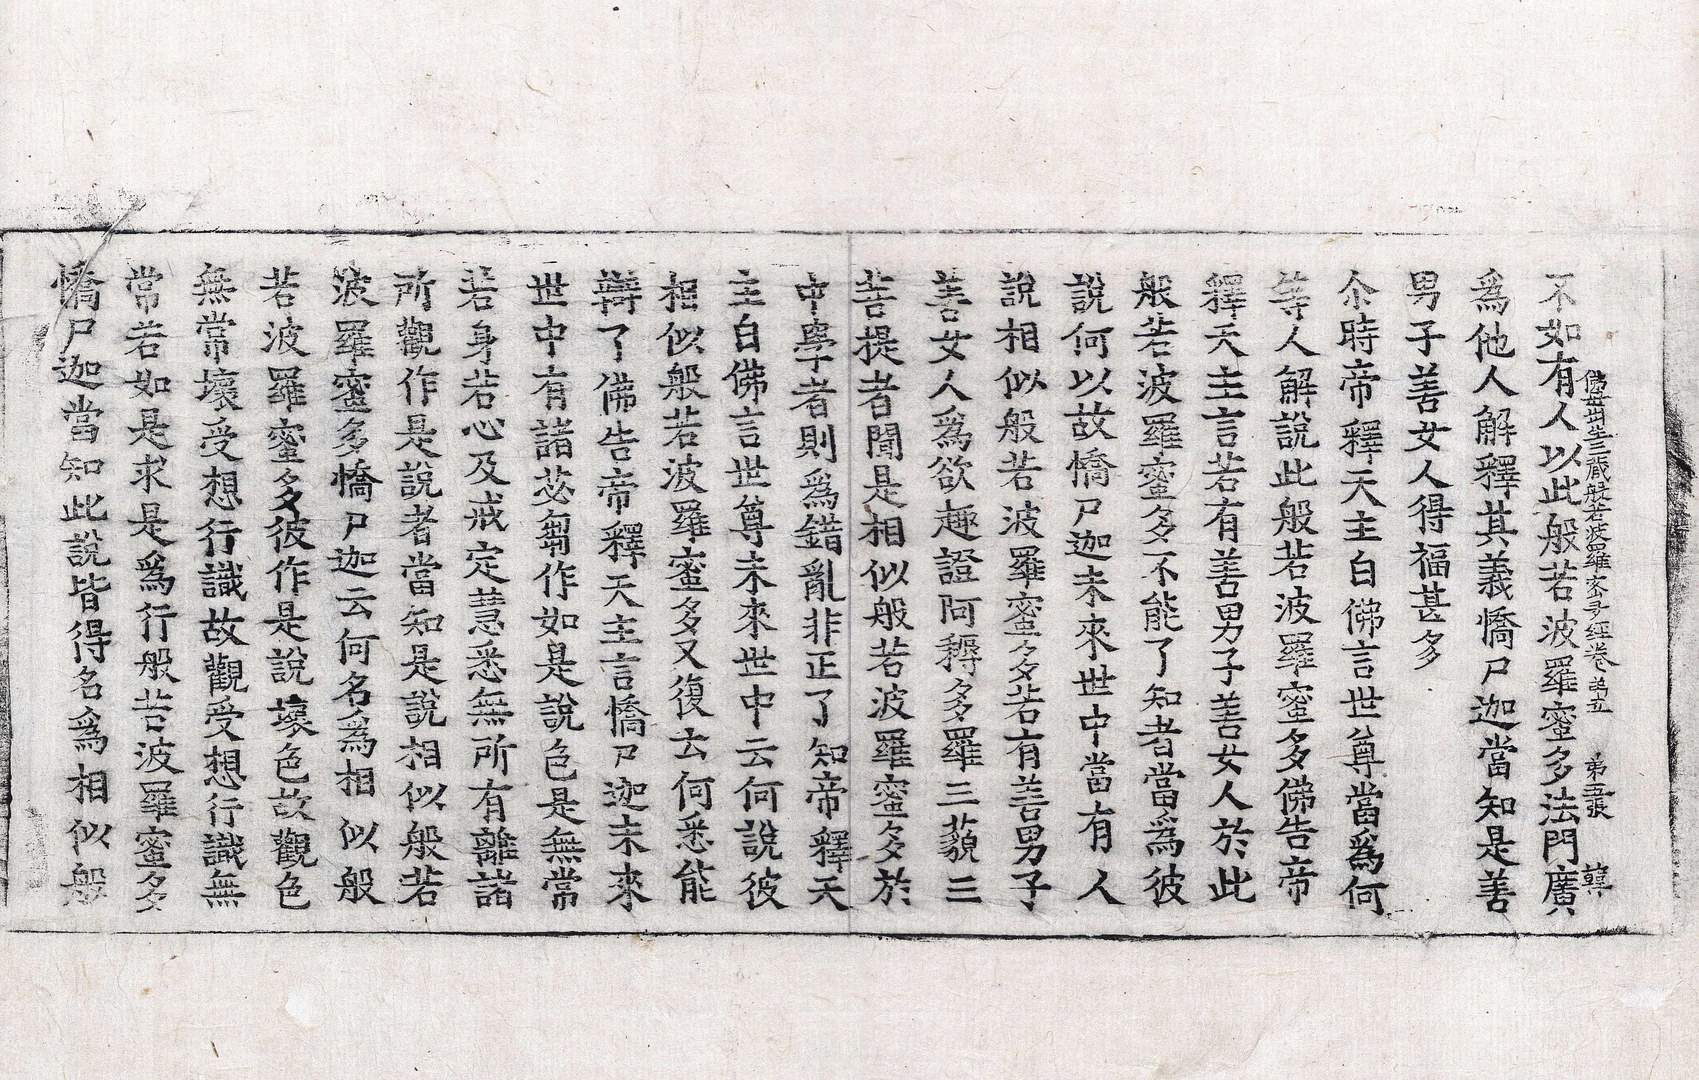 佛母出生三藏般若波羅蜜多經卷第五　第五張　韓
不如有人以此般若波羅蜜多法門廣
爲他人解釋其義憍尸迦當知是善
男子善女人得福甚多
尒時帝釋天主白佛言世尊當爲何
等人解說此般若波羅蜜多佛告帝
釋天主言若有善男子善女人於此
般若波羅蜜多不能了知者當爲彼
說何以故憍尸迦未來世中當有人
說相似般若波羅蜜多若有善男子
善女人爲欲趣證阿耨多羅三藐三
菩提者聞是相似般若波羅蜜多於
中學者則爲錯亂非正了知帝釋天
主白佛言世尊未來世中云何說彼
相似般若波羅蜜多又復云何悉能
辯了佛告帝釋天主言憍尸迦未來
世中有諸苾芻作如是說色是無常
若身若心及戒定慧悉無所有離諸
所觀作是說者當知是說相似般若
波羅蜜多憍尸迦云何名爲相似般
若波羅蜜多彼作是說壞色故觀色
無常壞受想行識故觀受想行識無
常若如是求是爲行般若波羅蜜多
憍尸迦當知此說皆得名爲相似般